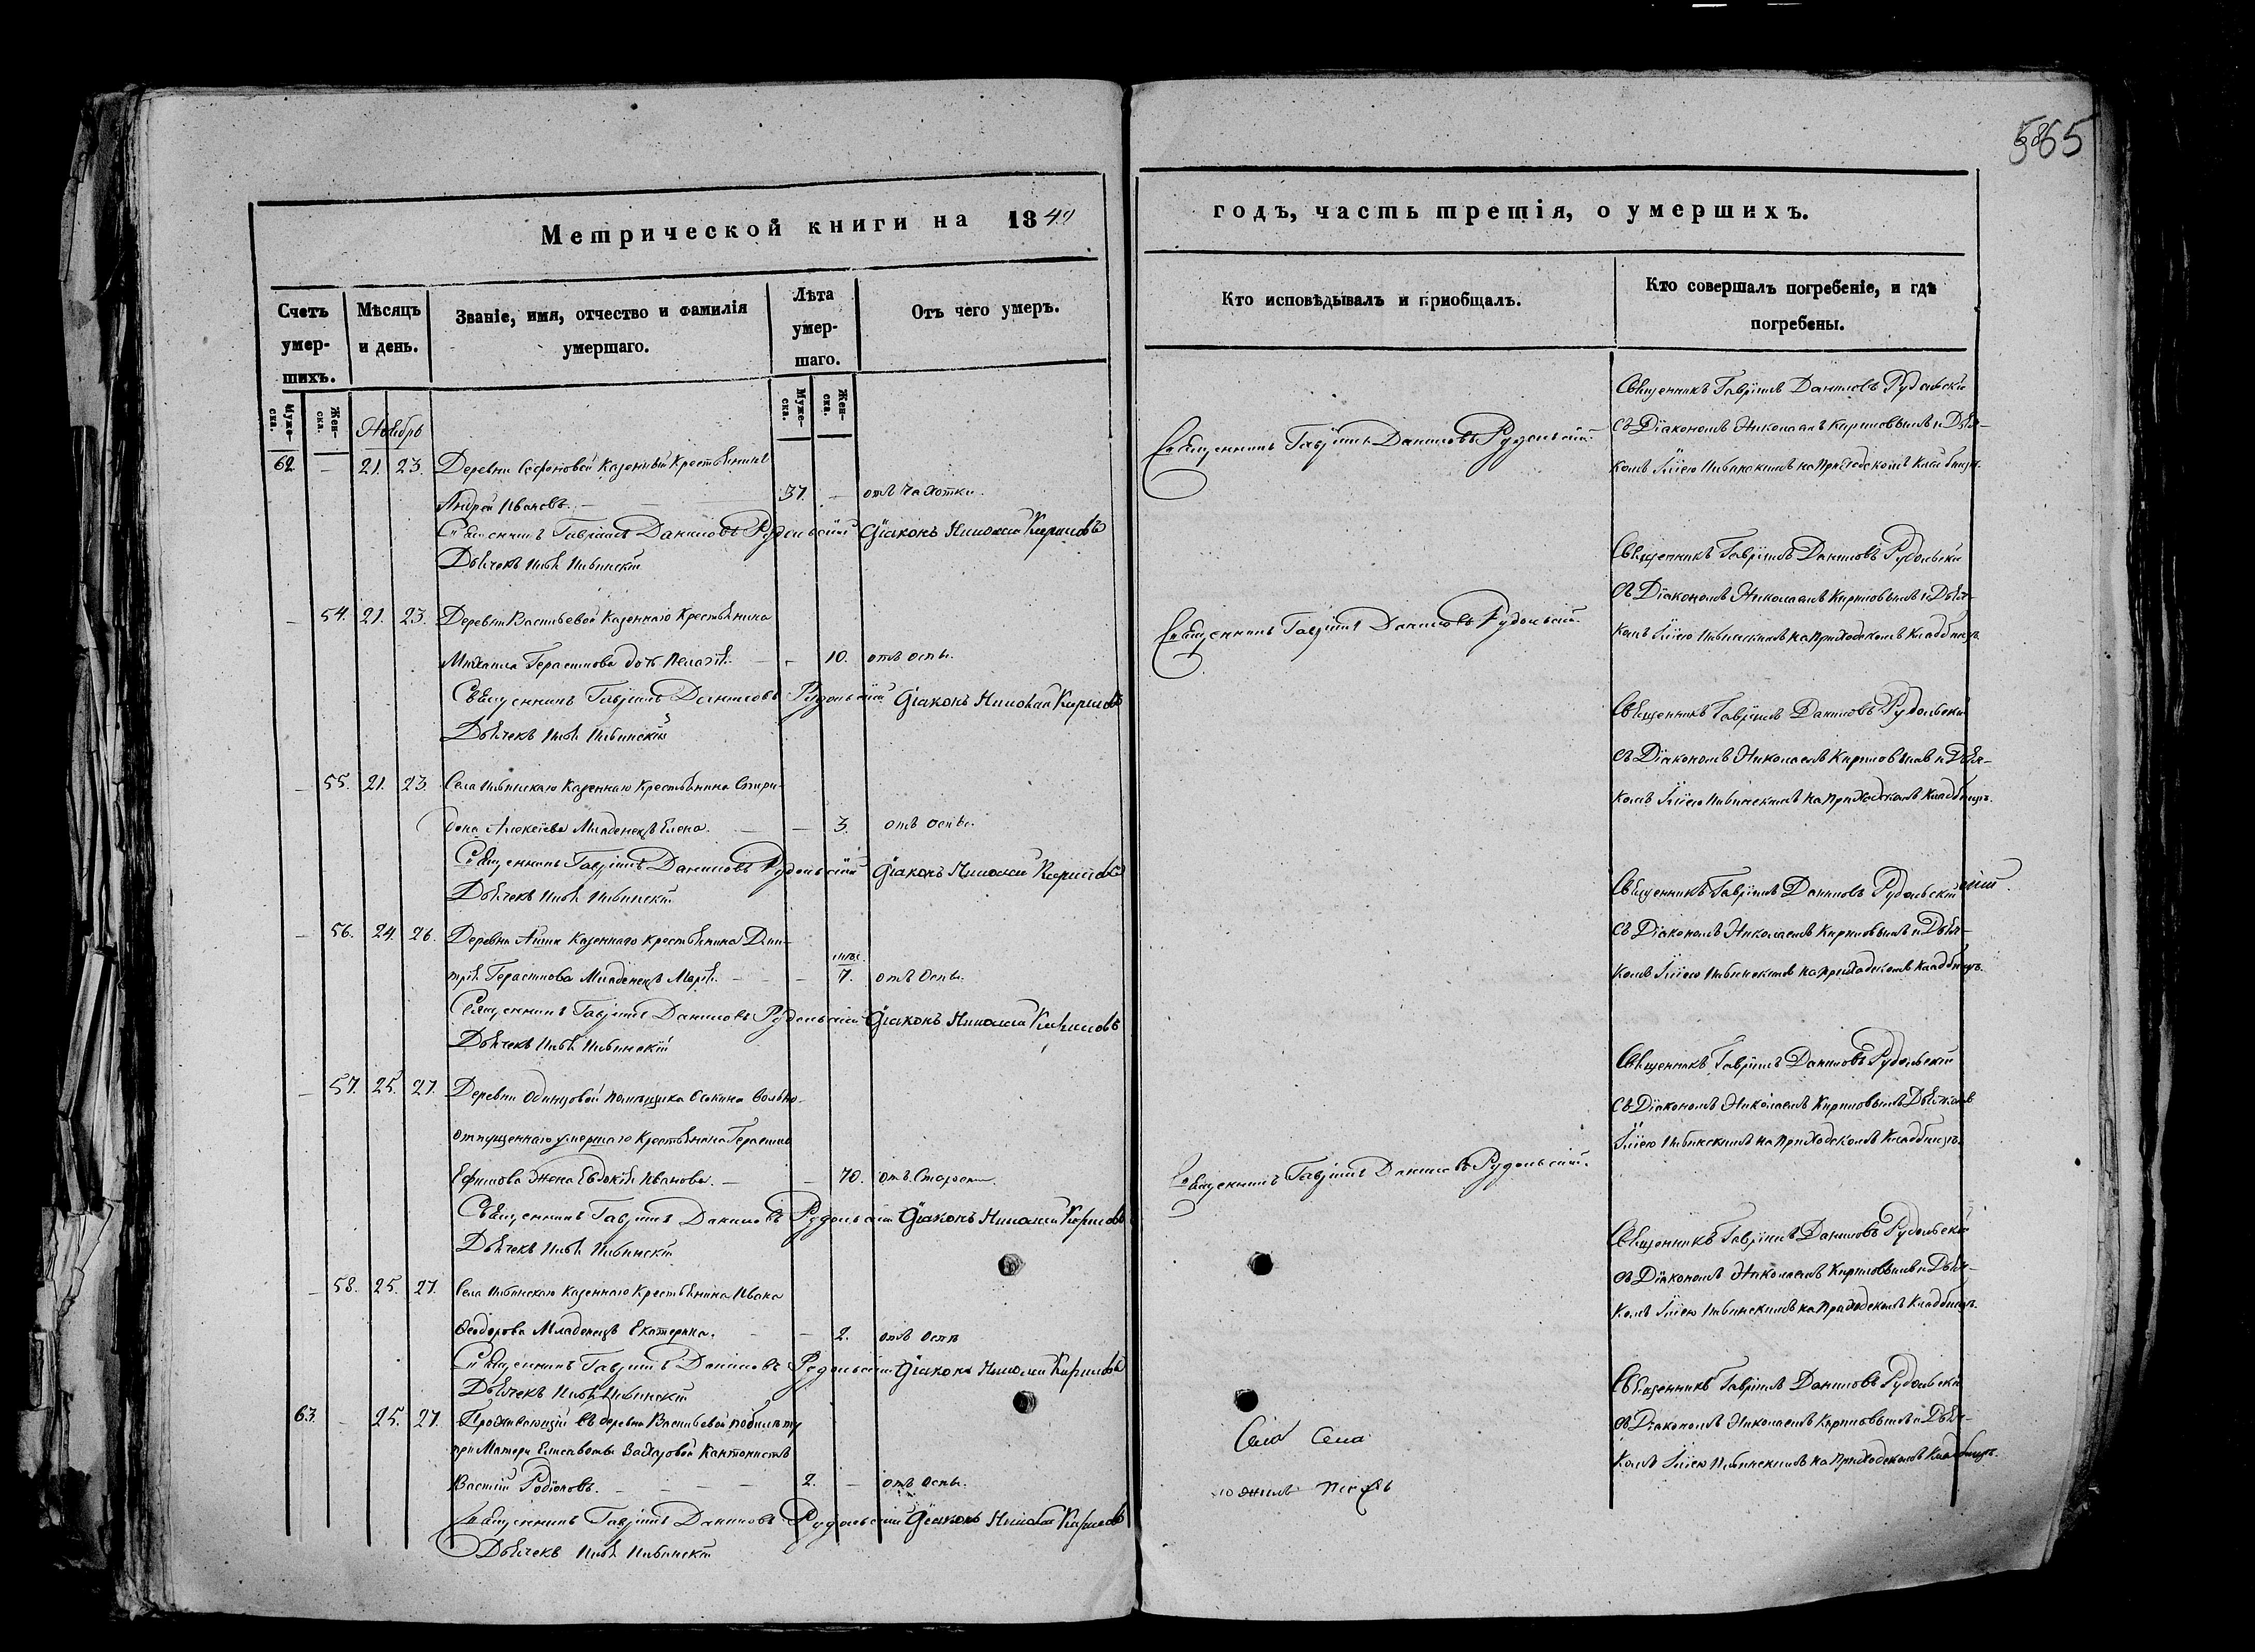 565
Метрической книги на 1840
годъ, часть третія, о умершихъ.
Счетъ умер-шихъ.
Мѣсяцъ и день.
Званіе, имя, отчество и фамилія умершаго.
Лѣта умер-шаго.
Отъ чего умеръ.
Кто исповѣдывалъ и приобщалъ.
Кто совершалъ погребеніе, и гдѣ погребены.
Муже-ска.
Жен-ска.
Муже-ска.
Жен-ска.
Ноябрь
62 – 21. 23. Деревни Казенный Крестьянинъ
Андрей Ивановъ. 37. – отъ чахотки.
Священникъ Гавріилъ Даниловъ Рудольскій Діаконъ Николай Кириловъ
Дьячекъ
Священникъ Гавріилъ Даниловъ Рудольскій
Священникъ Гавріилъ Даниловъ Рудольскій
съ Діакономъ Николаемъ Кириловымъ и Дьяч-
комъ на Приходскомъ Кладбищѣ.
– 54. 21. 23. Деревни Васильевой Казеннаго Крестьянина
Михаила Герасимова дочь Пелагія. – 10. отъ оспы.
Священникъ Гавріилъ Даниловъ Рудольскій Діаконъ Николай Кириловъ
Дьячекъ
Священникъ Гавріилъ Даниловъ Рудольскій.
Священникъ Гавріилъ Даниловъ Рудольскій
съ Діакономъ Николаемъ Кириловымъ и Дьяч-
комъ на Приходскомъ Кладбищѣ.
– 55. 21. 23. Села Казеннаго Крестьянина Спири-
дона Алексѣева Младенецъ Елена. – 3. отъ оспы.
Священникъ Гавріилъ Даниловъ Рудольскій Діаконъ Николай Кириловъ
Дьячекъ
Священникъ Гавріилъ Даниловъ Рудольскій
съ Діакономъ Николаемъ Кириловымъ и Дьяч-
комъ на Приходскомъ Кладбищѣ.
– 56. 24. 26. Деревни Казеннаго крестьянина Дми-
трія Герасимова Младенецъ Марія. – 7. отъ Оспы.
Священникъ Гавріилъ Даниловъ Рудольскій Діаконъ Николай Кириловъ
Дьячекъ
Священникъ Гавріилъ Даниловъ Рудольскій
съ Діакономъ Николаемъ Кириловымъ и Дьяч-
комъ на Приходскомъ Кладбищѣ.
– 57. 25. 27. Деревни Одинцовой помѣщика Осокина Вольно-
отпущеннаго умершаго Крестьянина Герасима
Ефимова Жена Евдокія Иванова. – 70. отъ Старости.
Священникъ Гавріилъ Даниловъ Рудольскій Діаконъ Николай Кириловъ
Дьячекъ
Священникъ Гавріилъ Даниловъ Рудольскій.
Священникъ Гавріилъ Даниловъ Рудольскій
съ Діакономъ Николаемъ Кириловымъ Дьячкомъ
на Приходскомъ Кладбищѣ.
– 58. 25. 27. Села Казеннаго Крестьянина Ивана
Ѳеодорова Младенецъ Екатерина. – 2. отъ оспы
Священникъ Гавріилъ Даниловъ Рудольскій Діаконъ Николай Кириловъ
Дьячекъ
Священникъ Гавріилъ Даниловъ Рудольскій
съ Діакономъ Николаемъ Кириловымъ и Дьяч-
комъ на Приходскомъ Кладбищѣ.
63. – 25. 27. Проживающій въ деревни Васильевой по билету
при Матери Елисаветы Захаровой Кантонистъ
Василій Родіоновъ. 2. – отъ Оспы.
Священникъ Гавріилъ Даниловъ Рудольскій Діаконъ Николай Кириловъ
Дьячекъ
Села Села
Священникъ Гавріилъ Даниловъ Рудольскій
съ Діакономъ Николаемъ Кириловымъ и Дьяч-
комъ на Приходскомъ Кладбищѣ.